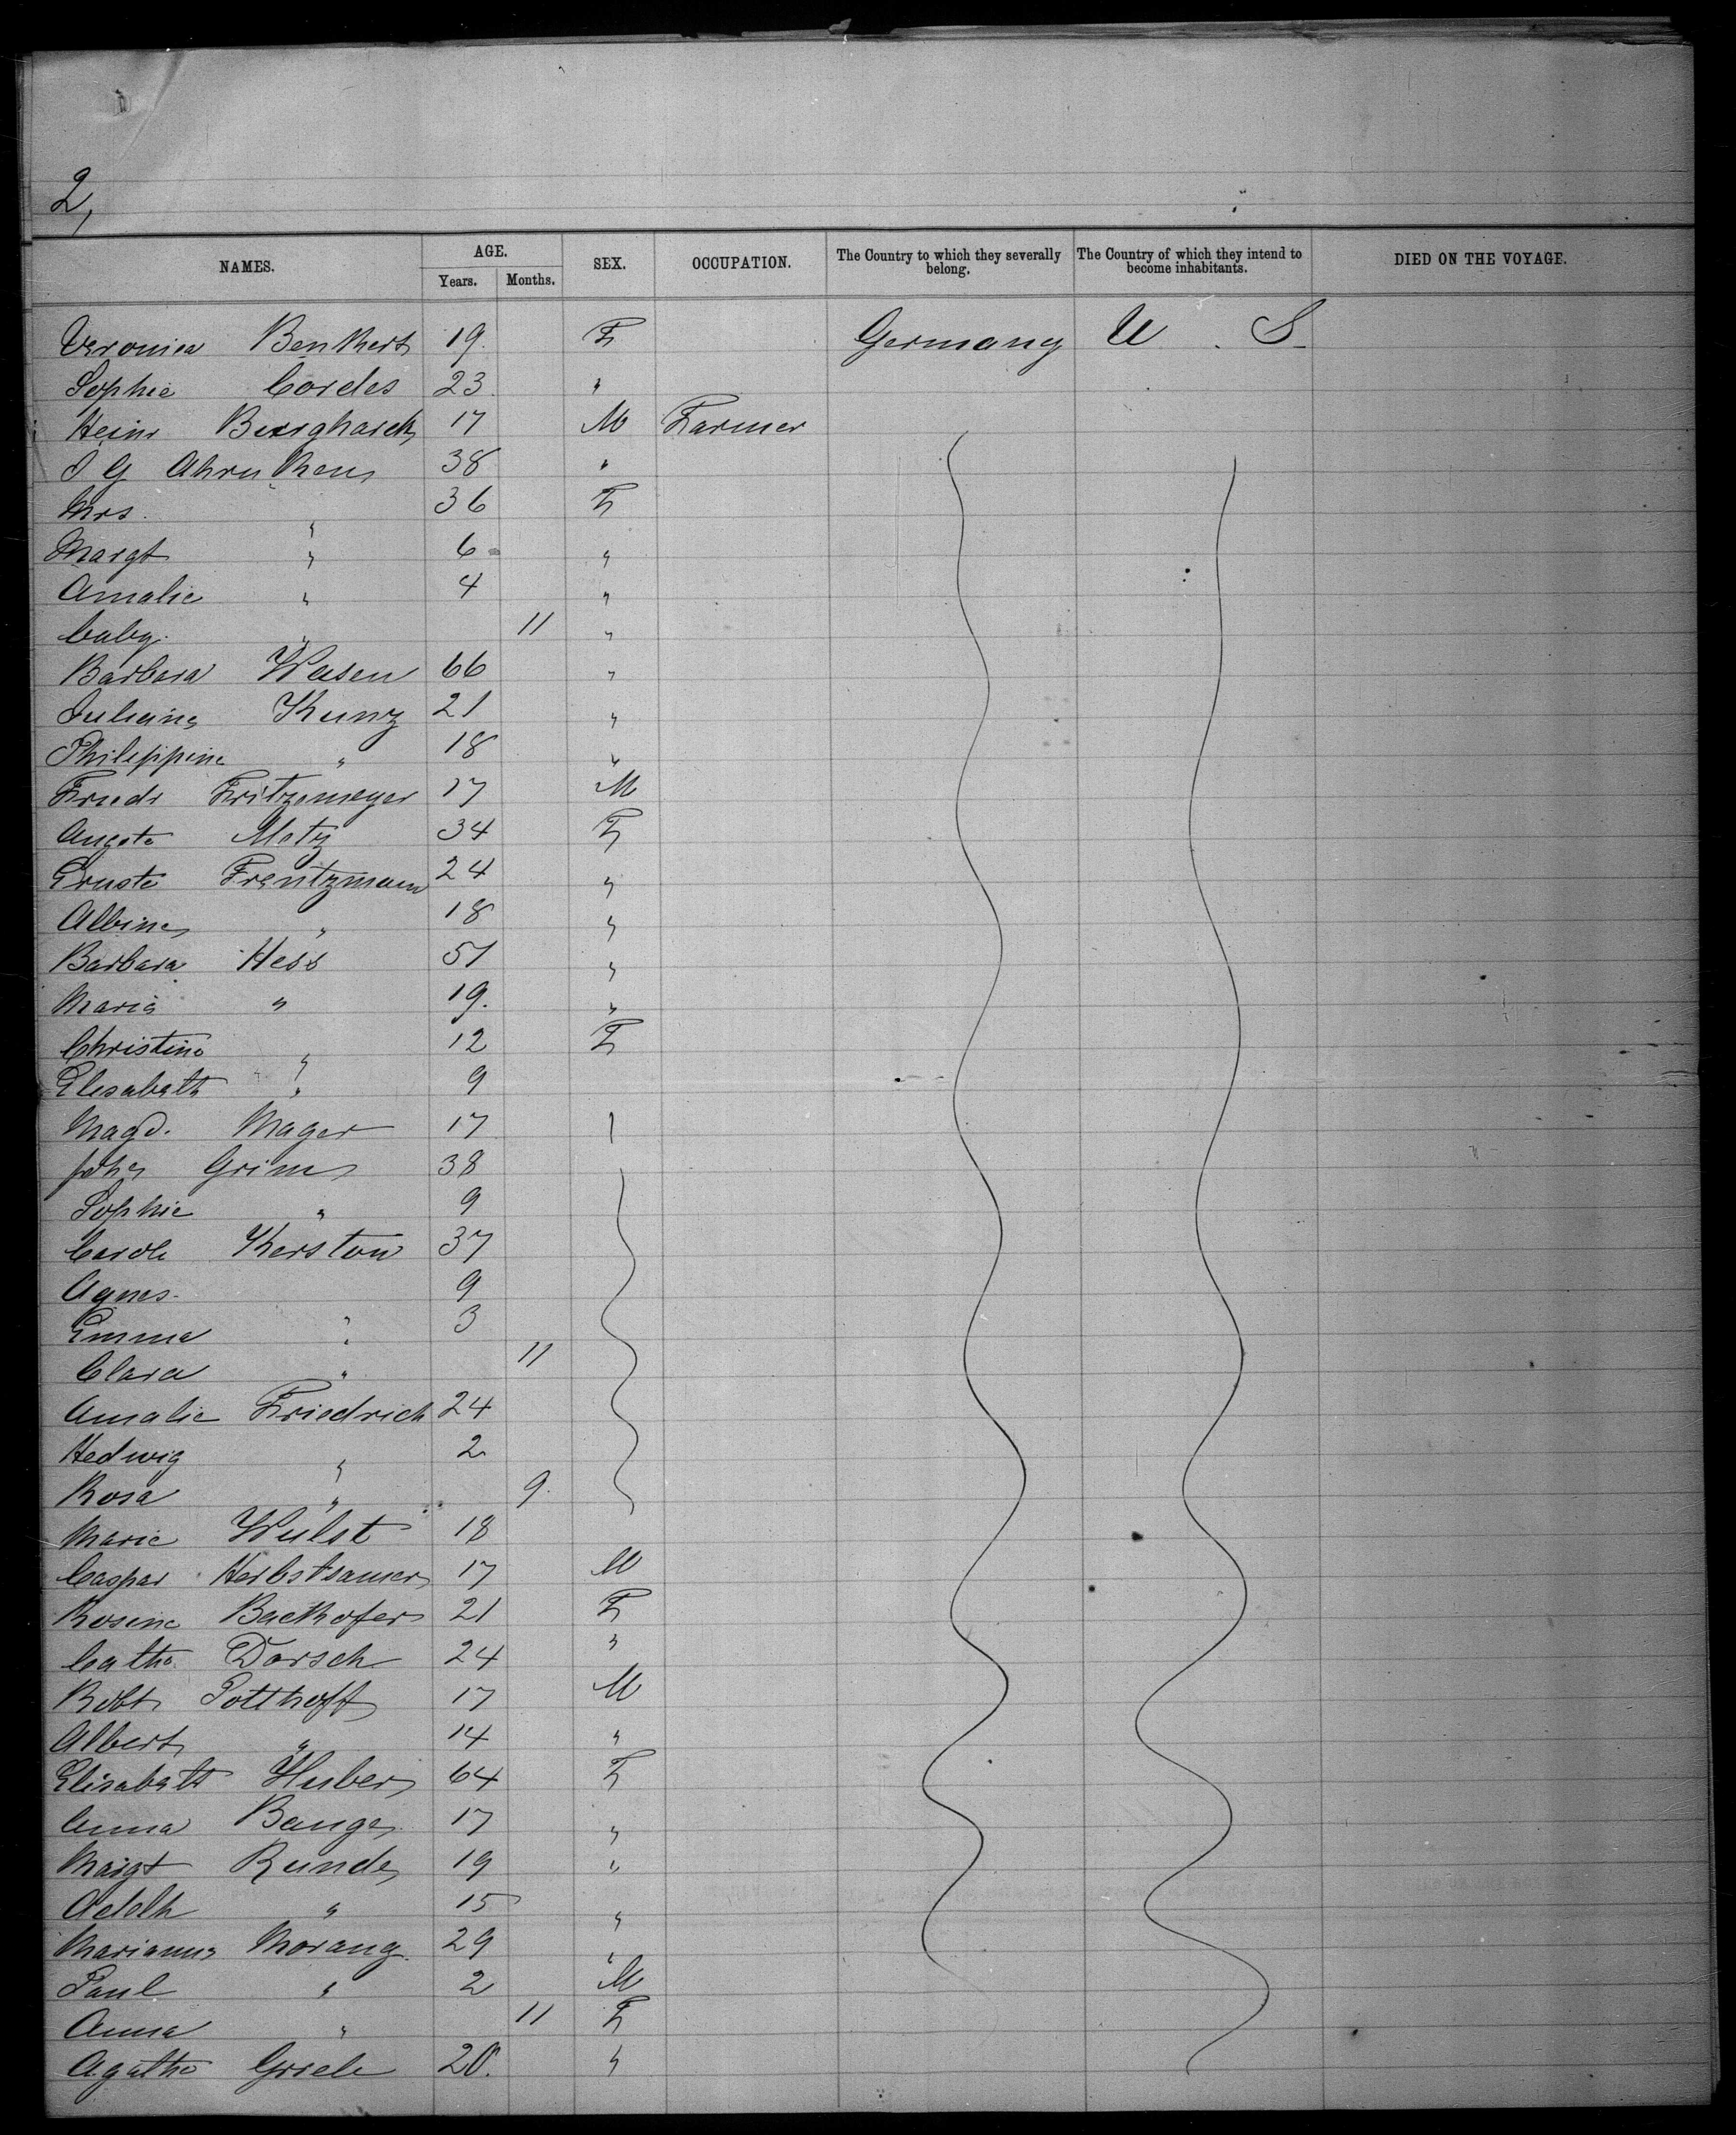 2,
NAMES. AGE. SEX. OCCUPATION. The Country to which they severally belong. The Country of which they intend to become inhabitants. DIED ON THE VOYAGE.
Years. Months.
Veronica Benkert 19. F Germany U. S.
Sophie Cordes 23 "
Heinr Burghardt 17 M Farmer
J G Ahrn Kens 38 "
Mrs. " 36 F
Margt " 6 "
Amalie " 4 "
baby. " 11 "
Barbara Weisen 66 "
Juliane Kunz 21 "
Philippine " 18 "
Friedr Fritzemeyer 17 M
Augste Metz 34 F
Ernste Frentzmann 24 "
Albine " 18 "
Barbara Hess 51 "
Maria " 19. "
Christine " 12 F
Elisabeth " 9
Magd. Mager 17
Grim 38
Sophie " 9
Carole Kersten 37
Agnes. 9
Emma " 3
Clara " 11
Amalie Friedrich 24
Hedwig " 2
Rosa " 9.
Marie Wulst 18
Caspar Herbstsamer 17 M
Rosine Backofer 21 F
Cathe. Dorsch 24 "
Robt Potthoff 17 M
Albert " 14 "
Elisabeth Huber 64 F
Anna Bange 17 "
Margt Runde 19 "
Adelh " 15 "
Marianna Morang 29 "
Paul " 2 M
Anna " 11 F
Agathe 20. "